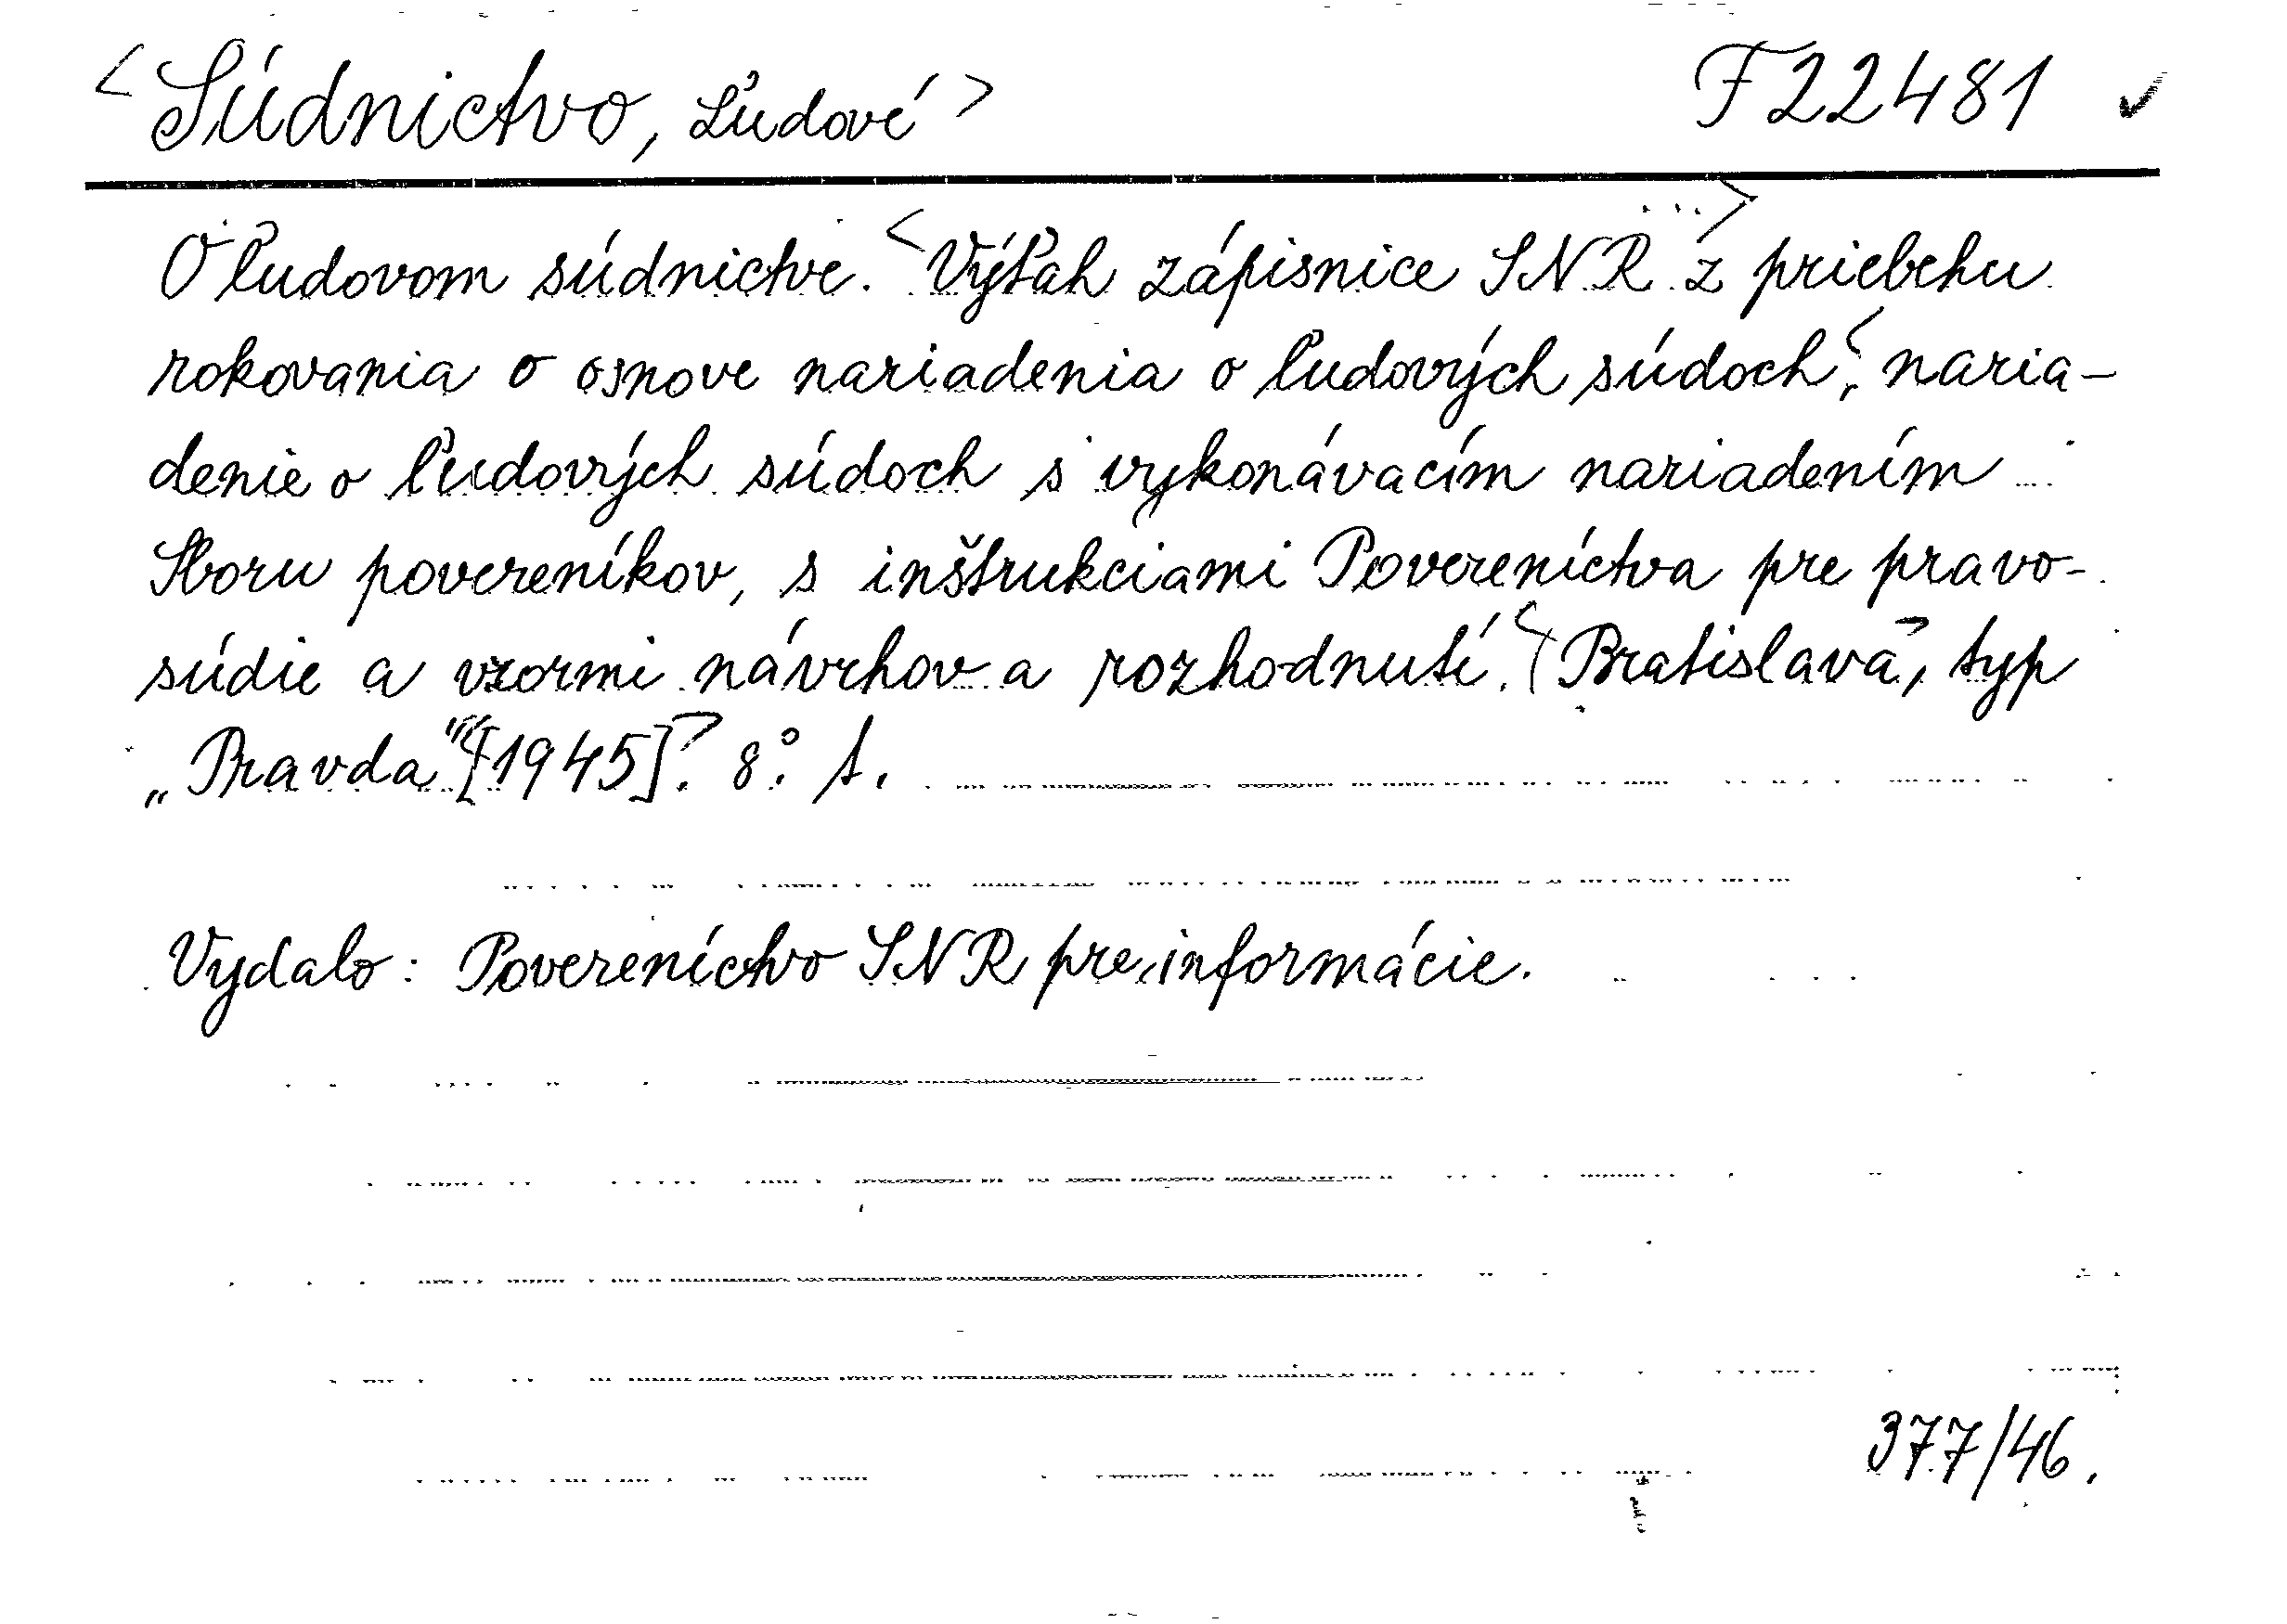 <Súdnictvo, Ľudové> F 22481 ✓
O ľudovom súdnictve. <Výťah zápisnice SNR ...> z priebehu
rokovania o osnove nariadenia o ľudových súdoch, naria-
denie o ľudových súdoch s vykonávacím nariadením
Sboru povereníkov, s inštrukciami Povereníctva pre pravo-
súdie a vzormi návrhov a rozhodnutí. <(Bratislava>, typ
„Pravda" <[1945]>. 8°. s.
Vydalo: Povereníctvo SNR pre informácie.
377/46.